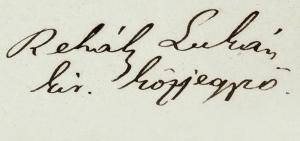 Rehák Lukán
kir. közjegyző.